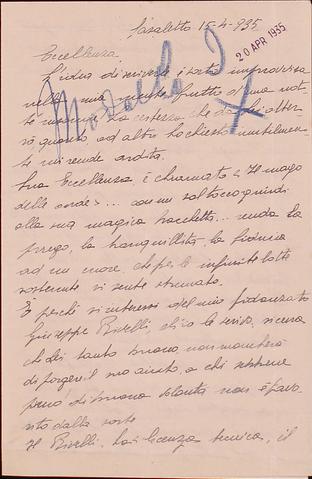 Casaletto 15-4-935
20 APR 1935
Eccellenza,
L'idea di scriverle è sorta improvvisa
nella mia mente frutto d'una not-
te insonne. La certezza che
vò, quanto ad altri ho chiesto inutilmen-
te mi rende ardita.
Sua Eccellenza è chiamato "Il mago
delle onde"... con un sol tocco quindi
della sua magica bacchetta... renda La
prego, la tranquillità, la fiducia
ad un cuore che per le infinite lotte
sostenute si sente stremato.
È perchè si interessi del mio fidanzato
Giuseppe Rivelli, che io le scrivo, sicura
che Lei tanto buono, non mancherà
di porgere il suo aiuto, a chi sebbene
pieno di buona volontà non è favo-
rito dalla sorte.
Il Rivelli, ha licenza tecnica, il